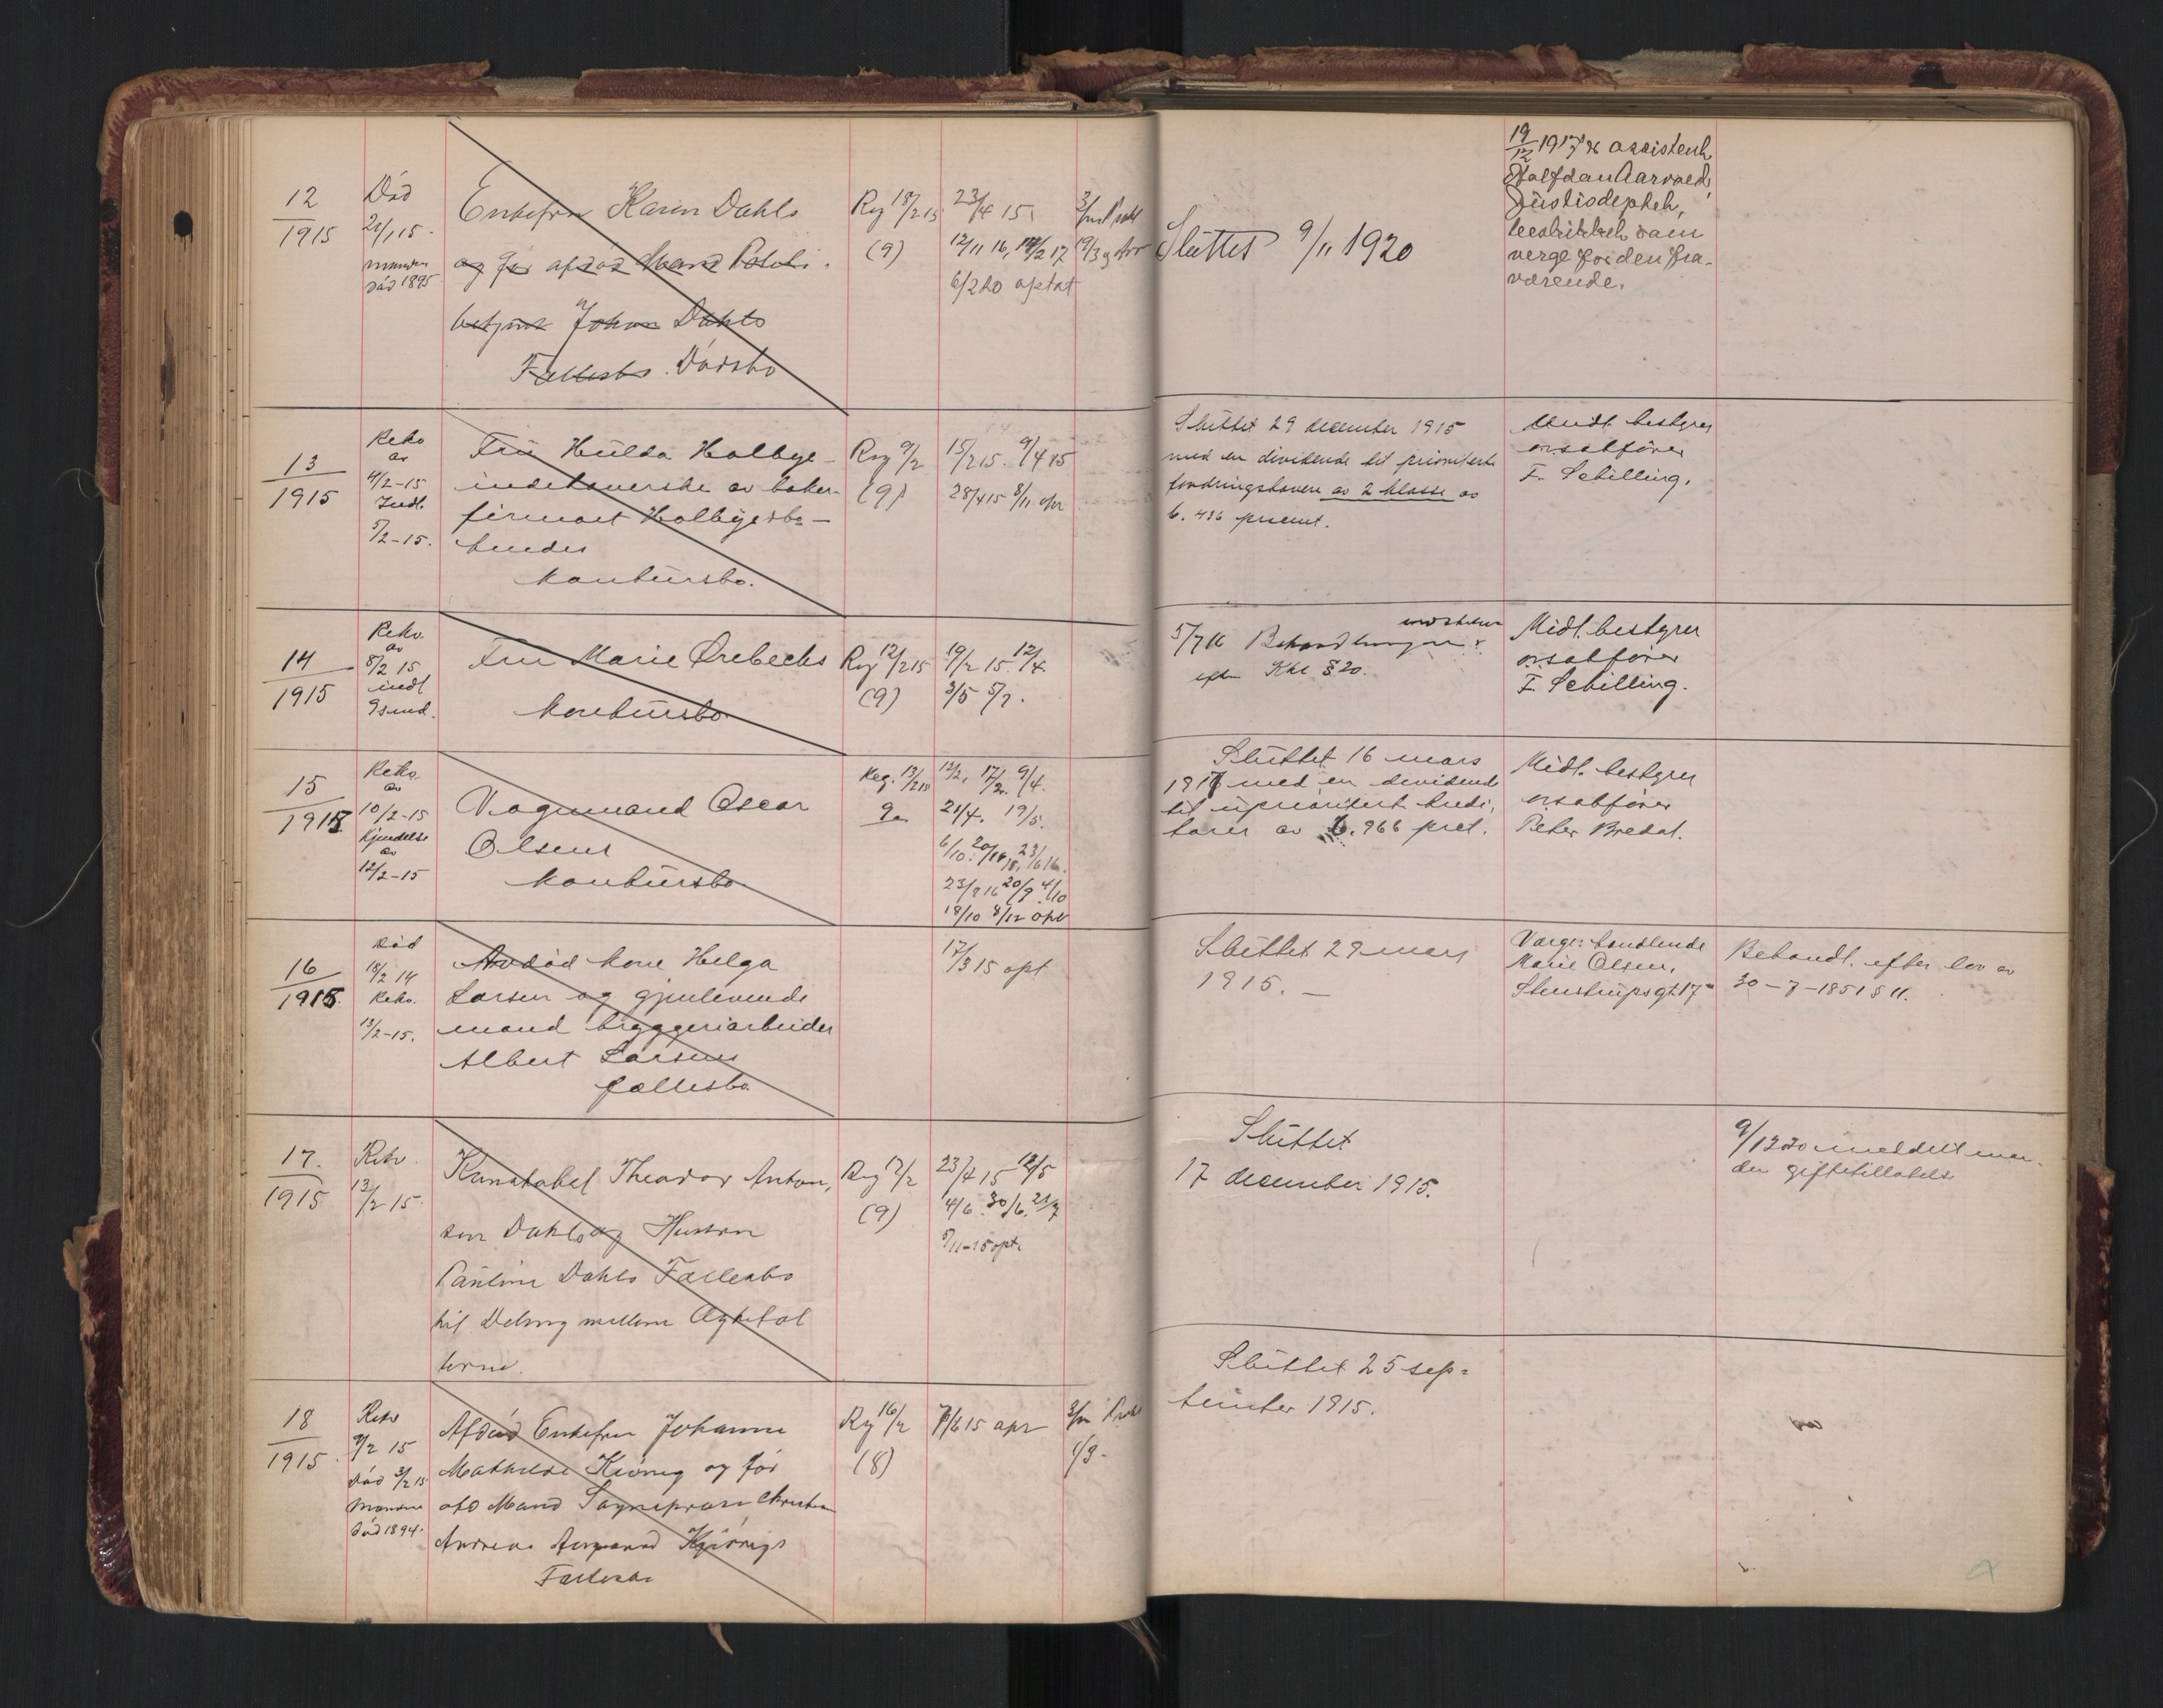 12
1915
Død
21/1 15.
manden
død 1895
Enkefru Karen Dahls
og før afdød Mand Politi.
betjent Johan Dahls
Fællesbo. Dødsbo
Reg 18/2 15
(9)
23/4 15.
12/11 16, 14/2 17
6/2 20 optat
Sluttet 9/11 1920
19/12 1917 assistent
Halfdan Aarvold,
Justisdeptet,
som
verge for den fra-
værende.
13
1915
Rekv
av
4/2-15
Indl.
5/2-15.
Fru Hulda Holbye
indehaverske av baker-
firmaet Holbyesbo-
hendes
konkursbo.
Reg 9/2
(9)
15/2 15. 9/4 15
28/4 15 8/11 opr
Sluttet 29 december 1915
med en dividende til prioriterte
fordringshavere av 2 klasse av
6.436 procent.
Midl. bestyrer
o.r.sakfører
F. Schilling.
14
1915
Rekv.
av
8/2 15
indl
9 s.md.
Fru Marie Ørebecks
konkursbo
Reg 12/2 15
(9)
19/2 15 12/4.
3/5 5/7.
5/7 16 Behandlingen indstillet
efter Kkl § 20.
Midl. bestyrer
o.r.sakfører
F. Schilling.
15
1915
Rekv.
av
10/2-15
Kjendelse
av
12/2-15
Vognmand Oscar
Olsens
konkursbo
Reg. 13/2 15
9a
12/2, 17/2. 9/4.
21/4. 19/5.
23/8 16 20/9 4/10
18/10 8/12 opt
Sluttet 16 mars
1917 med en dividende
til uprioriterte kredi-
torer av 6.966 pret.
Midl. bestyrer
o.r.sakfører
Peter Bredal.
16
1915
død
18/2 14
Rekv.
13/2-15.
Avdød kone Helga
Larsen og gjenlevende
mand bryggeriarbeider
Albert Larsens
fællesbo
17/3 15 opt
Sluttet 29 mars
1915.
Verge: handlende
Marie Olsen,
Stenstrupsgt. 17
Behandl. efter lov av
30-7-1851 § 11.
17.
1915
Rekv
13/2 15.
Konstabel Theodor Anton,
sen Dahls og Hustru
Pauline Dahls Fællesbo
til Deling mellem Ægtefol
kene.
Reg 17/2
(9)
23/4 15 12/5
4/6. 30/6. 21/7
5/11-15 opt.
Sluttet
17 december 1915.
9/12 20 meddelt man-
den giftetilladelse
18
1915
Rekv
9/2 15
død 3/2 15
Manden
død 1894.
Afdød Enkefru Johanne
Mathilde Kjønig og før
afd Mand Christian
Andreas Kjønigs
Fællesbo
Reg 16/2
(8)
7/6 15 opr
Sluttet 25 sep-
tember 1915.